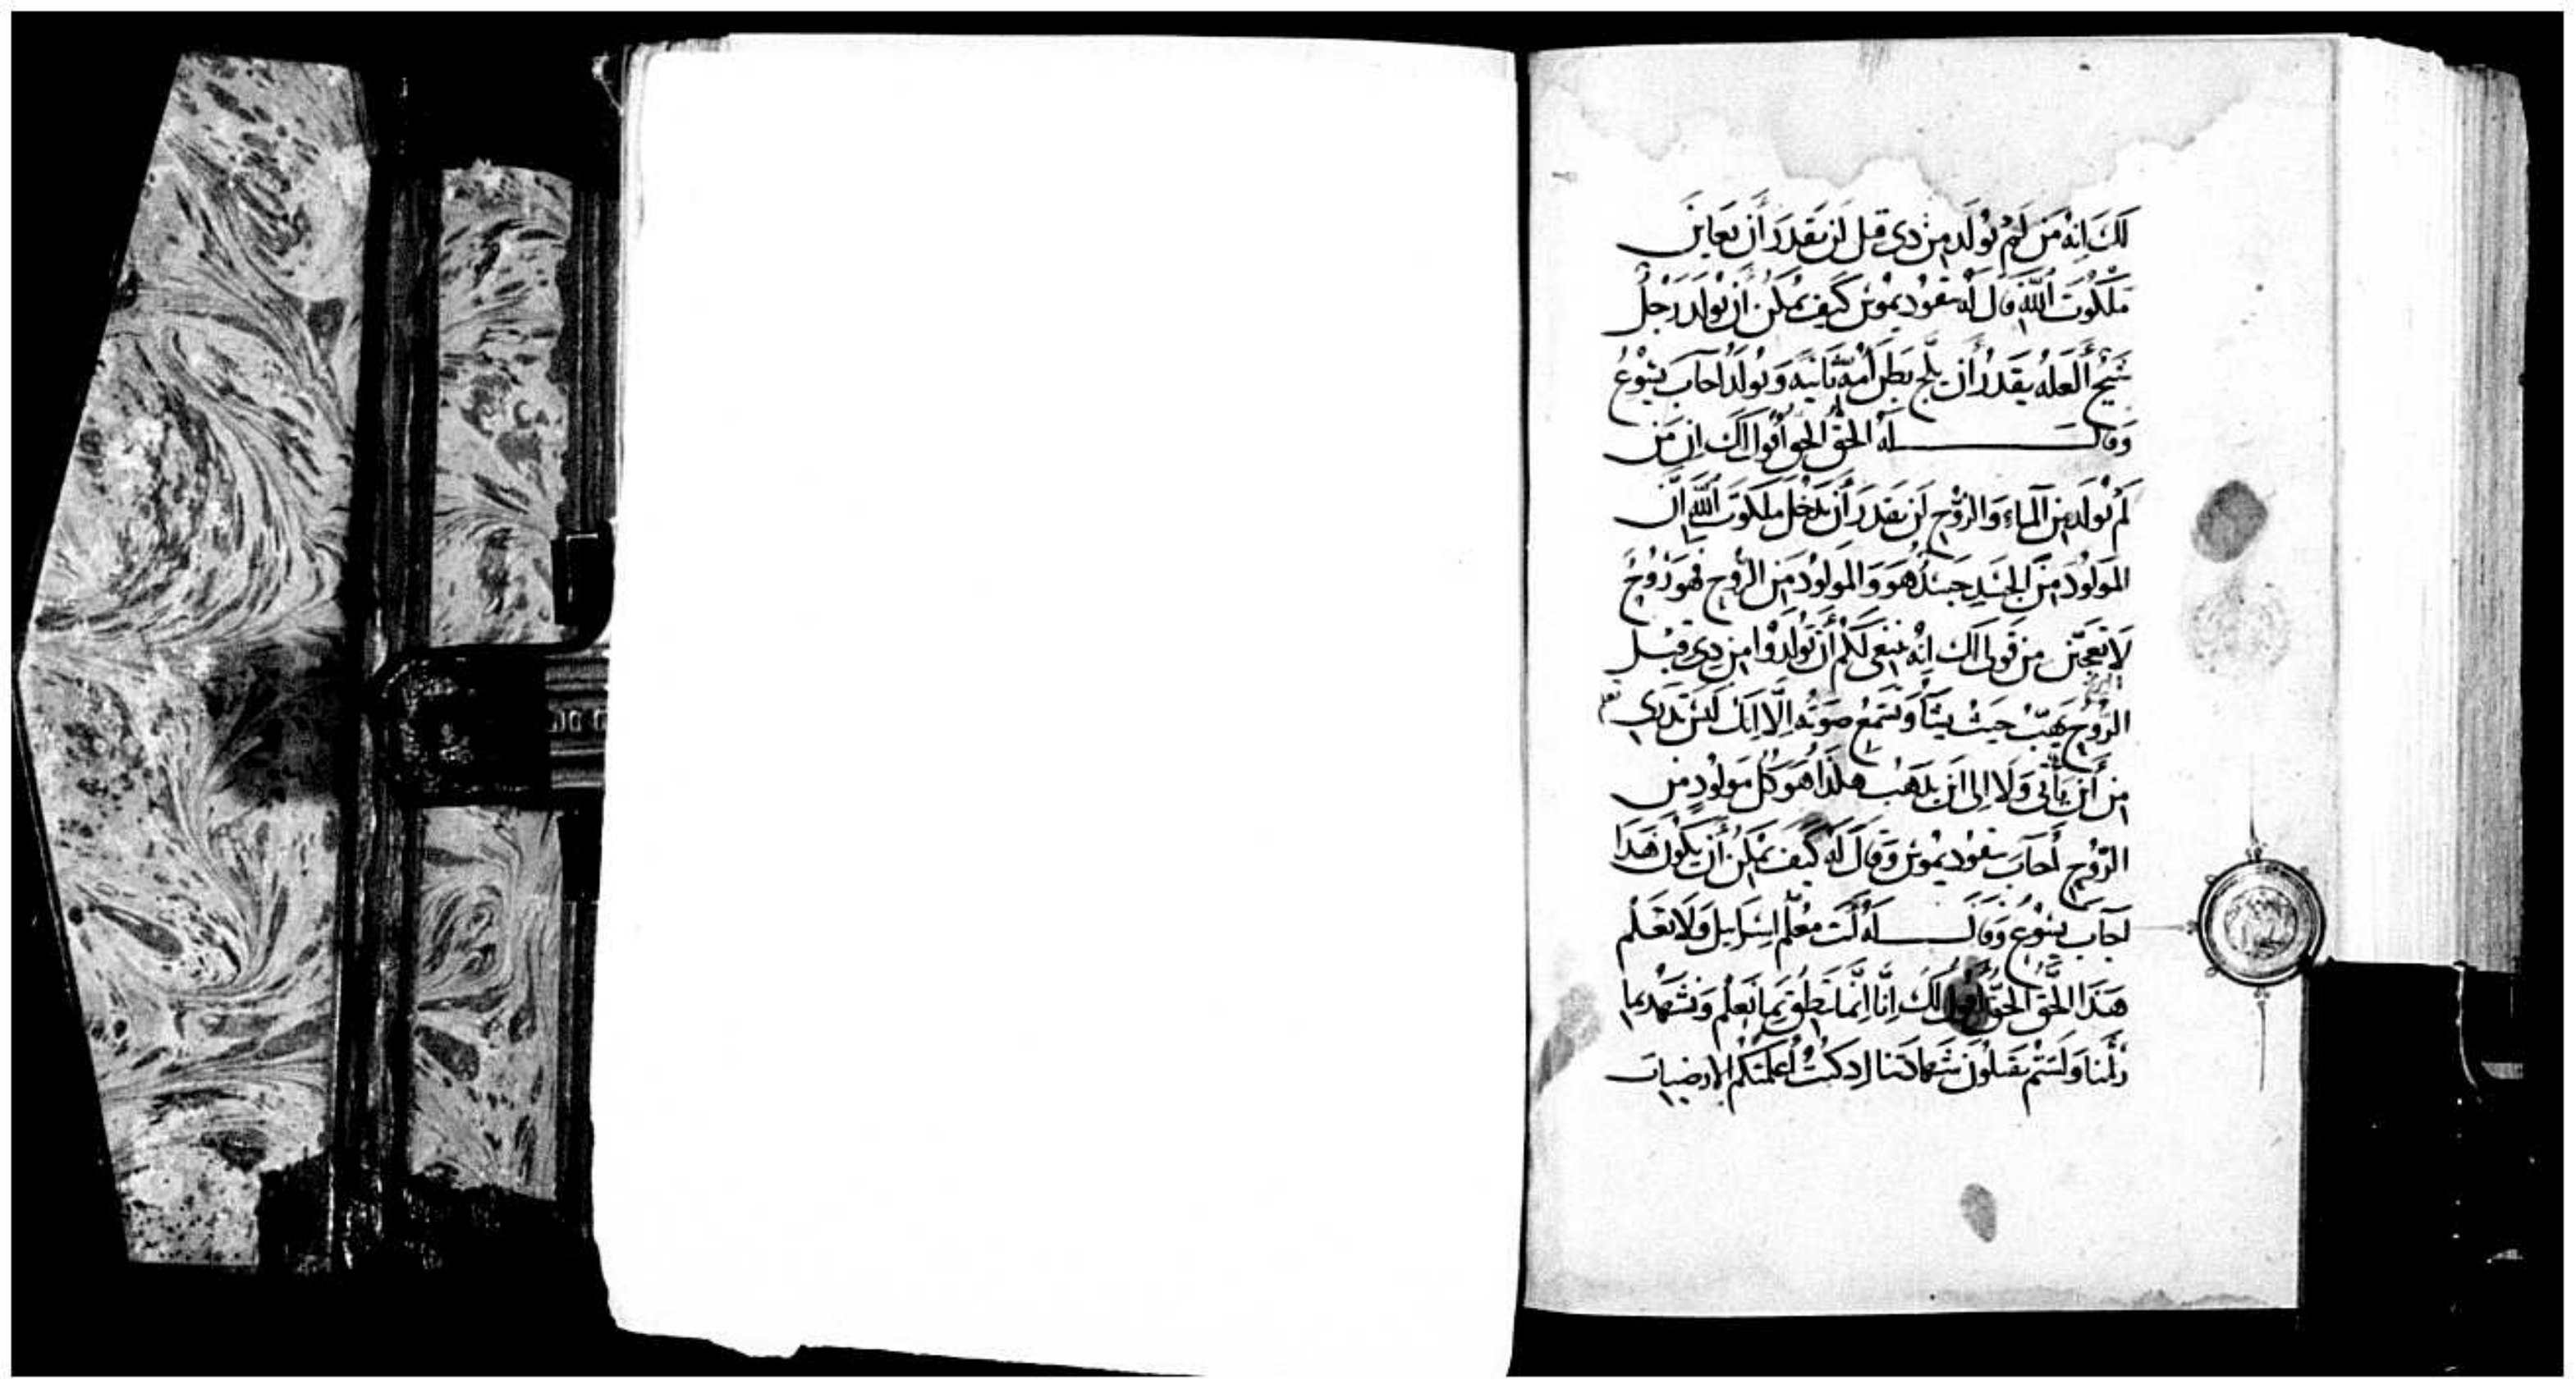 لَكَ اِنَهُ مَن لَمْ يُولَد مِن ذى قبل لَن يَقدِرَ أَن يُعايِنَ
مَلَكُوتَ اللَّهِ قال لَهُ نيقوديموس كَيفَ يُمكِن أن يُولَدَ رَجُلٌ
شَيخٌ أَلَعَلهُ يَقدرُ أن يلج بَطنَ أُمّهِ ثانيَه وَيُولَدُ اجابَ يَسُوعُ
وَقال لَهُ الحَقّ الحقّ أقُول لَك اِن مَن
لَم يُولَد مِن المَاءِ وَالرُّوْح لَن يَقدِرَ أن يَدخُلَ مَلكوتَ اللَّهِ اِنّ
المَولُودَ مِنَ الجَسَدِ جَسَدٌ هُوَ وَالمَولُودُ مِن الرُّوحِ فَهوَ رُوحٌ
لَا تَعجَبَنّ مِن قَولى لَك اِنَّه يَنبَغى لَكُم أَن تُولَدُوا مِن ذِى قَبل
الرُّوحُ يَهبّ حَيثُ يَشَأ وَتَسمَعُ صَوتَه اِلَّا اِنكَ لَيسَ تَدرى
تعلم
مِن أَينَ يَأتى وَلَا اِلى اَينَ يَذهَبُ هكَذَا هُوَ كُل مَولُودٍ مِنَ
الرُّوح أَجَابَ نيقوديموس وَقالَ لَهُ كَيفَ يُمكِن أَن يَكُونَ هَذَا
اجَابَ يَسُوعُ وَقال لَهُ أَنتَ مُعَلّم اِسرَايل وَلَا تَعلَم
هَذَا الحَقّ الحَقّ أَقول لَكَ اِنَّا اِنَّما نَنطق بِمَا نَعلَم وَنَشهَد بما
رَأَينا وَلَستُم تَقبَلُونَ شَهَادَتنا اِن كُنتُ أعلَمتكُم الارضيات